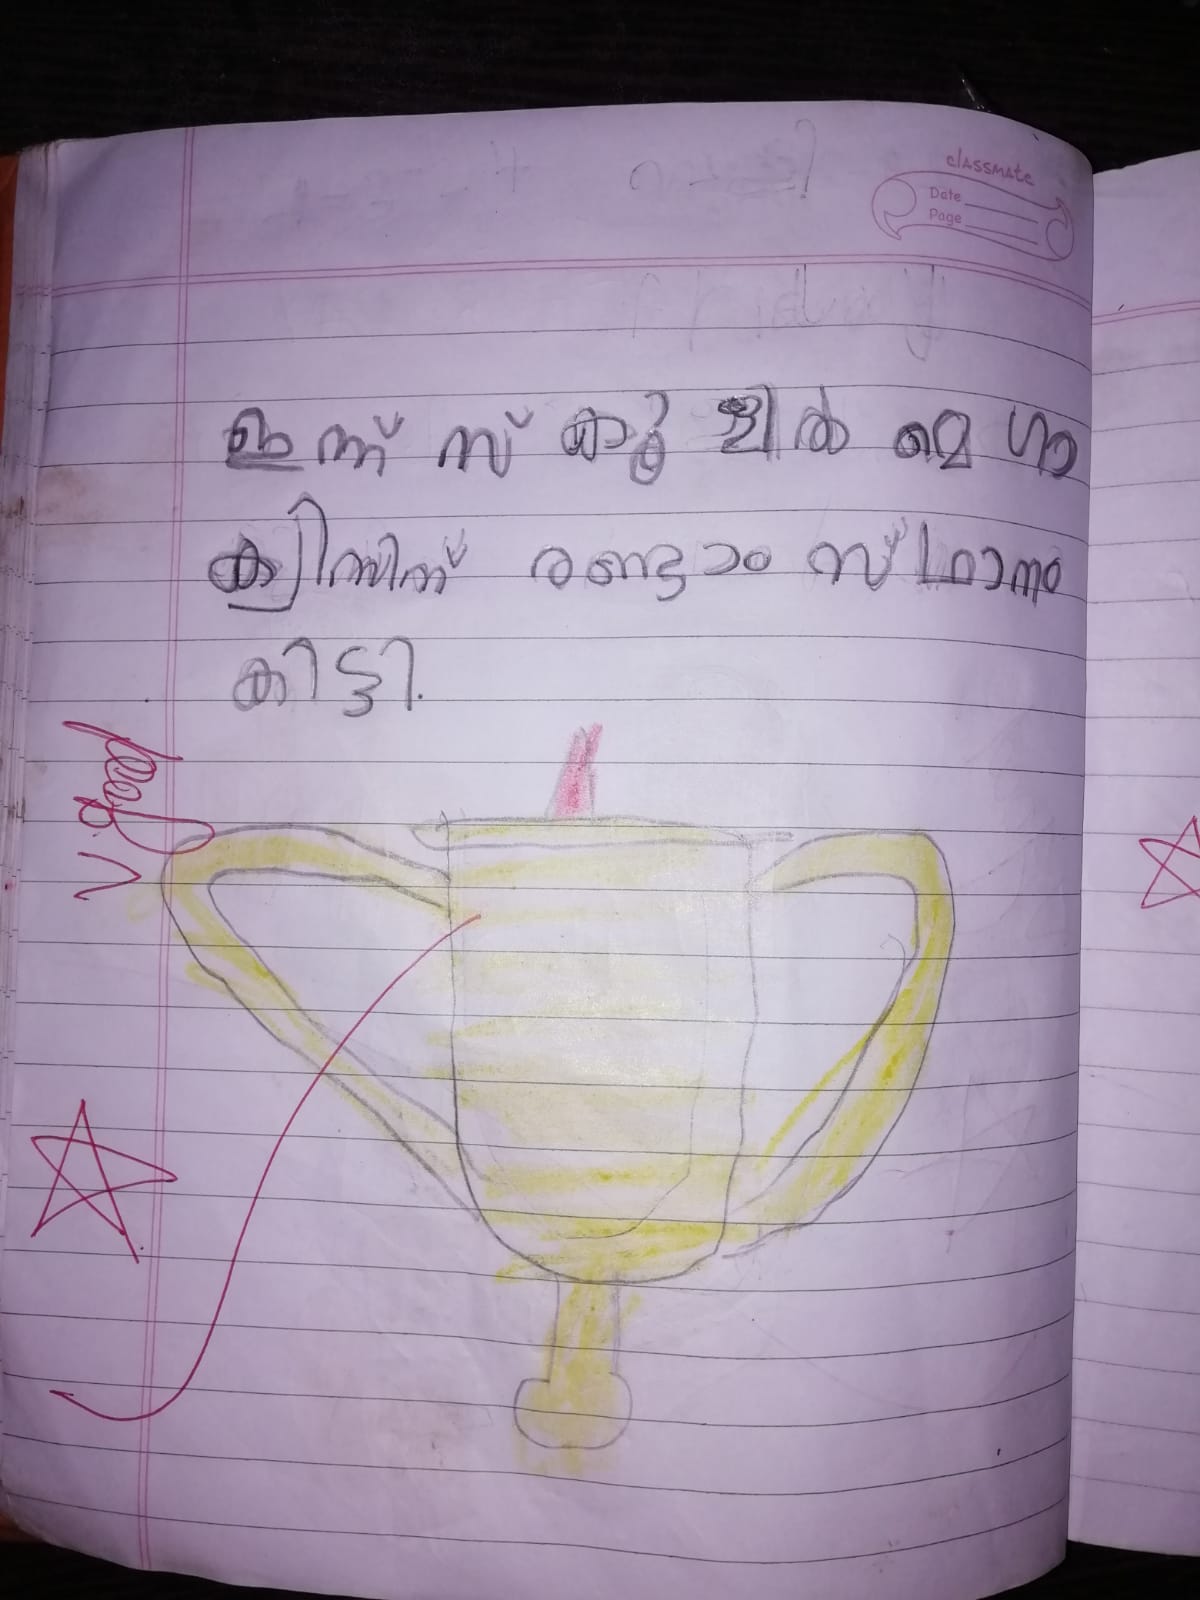 classmate
Date
Page
ഇന്ന് സ്കൂളിൽ മെഗാ
ക്വിസിന് രണ്ടാം സ്ഥാനം
കിട്ടി.